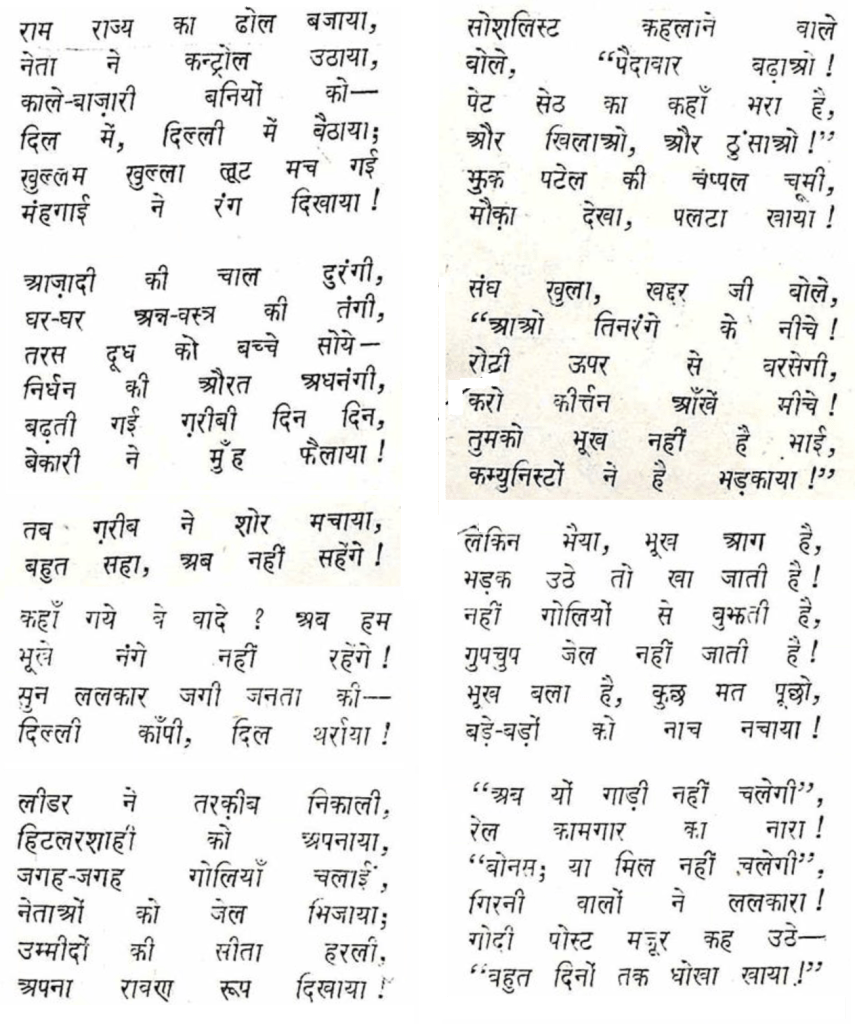 राम राज्य का ढोल बजाया,
नेता ने कन्ट्रोल उठाया,
काले-बाज़ारी बनियों को—
दिल में, दिल्ली में बैठाया;
खुल्लम खुल्ला लूट मच गई
मंहगाई ने रंग दिखाया !
आज़ादी की चाल दुरंगी,
घर-घर अन्न-वस्त्र की तंगी,
तरस दूध को बच्चे सोये—
निर्धन की औरत अधनंगी,
बढ़ती गई ग़रीबी दिन दिन,
बेकारी ने मुँह फैलाया !
तब ग़रीब ने शोर मचाया,
बहुत सहा, अब नहीं सहेंगे !
कहाँ गये वे वादे ? अब हम
भूखे नंगे नहीं रहेंगे !
सुन ललकार जगी जनता की—
दिल्ली काँपी, दिल थर्राया !
लीडर ने तरक़ीब निकाली,
हिटलरशाही को अपनाया,
जगह-जगह गोलियाँ चलाईं,
नेताओं को जेल भिजाया;
उम्मीदों की सीता हरली,
अपना रावण रूप दिखाया !
सोशलिस्ट कहलाने वाले
बोले, “पैदावार बढ़ाओ !
पेट सेठ का कहाँ भरा है,
और खिलाओ, और ठुंसाओ !”
झुक पटेल की चप्पल चूमी,
मौक़ा देखा, पलटा खाया !
संघ खुला, खद्दर जी बोले,
“आओ तिनरंगे के नीचे !
रोटी ऊपर से बरसेगी,
करो कीर्त्तन आँखें मीचे !
तुमको भूख नहीं है भाई,
कम्युनिस्टों ने है भड़काया !”
लेकिन भैया, भूख आग है,
भड़क उठे तो खा जाती है !
नहीं गोलियों से बुझती है,
गुपचुप जेल नहीं जाती है !
भूख बला है, कुछ मत पूछो,
बड़े-बड़ों को नाच नचाया !
“अब यों गाड़ी नहीं चलेगी”,
रेल कामगार का नारा !
“बोनस; या मिल नहीं चलेगी”,
गिरनी वालों ने ललकारा !
गोदी पोस्ट मजूर कह उठे—
“बहुत दिनों तक धोखा खाया !”